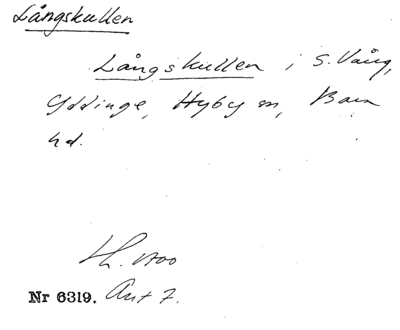 Långskullen
Långskullen i S. Vång,
Yddinge, Hyby sn, Bara
hd.
Nr 6319. Ant 7.